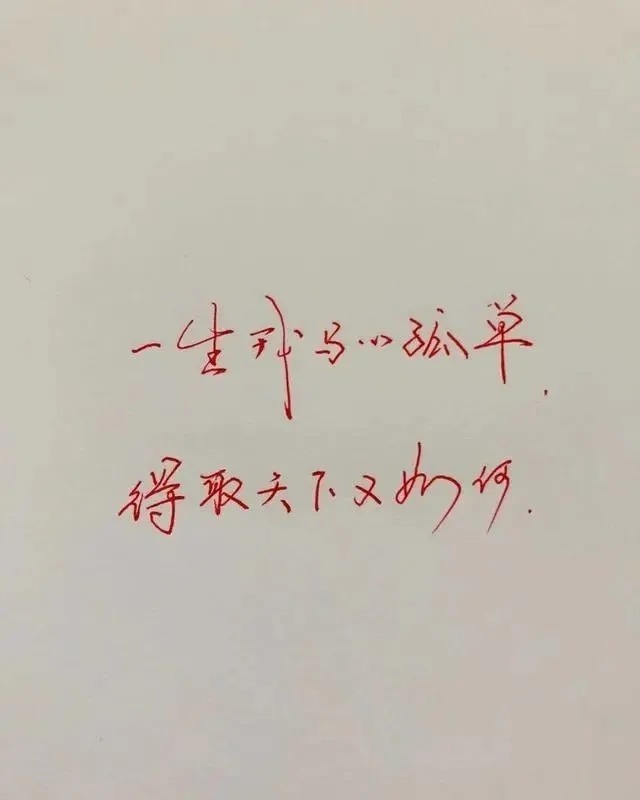 一生戎马心孤单.
得取天下又如何.